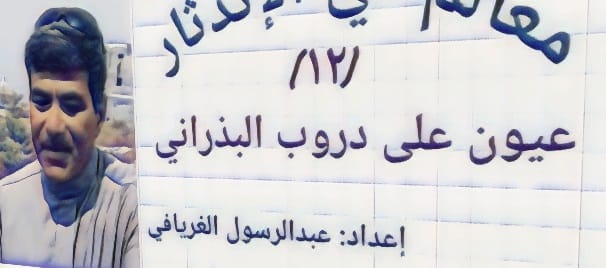 معالم في الإندثار
/١٢/
عيون على دروب البذراني
إعداد: عبدالرسول الغريافي